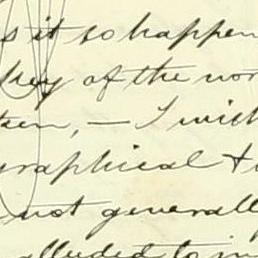 s it so happen
key of the wor
ten, — I wish
graphical
not generally
alluded to in